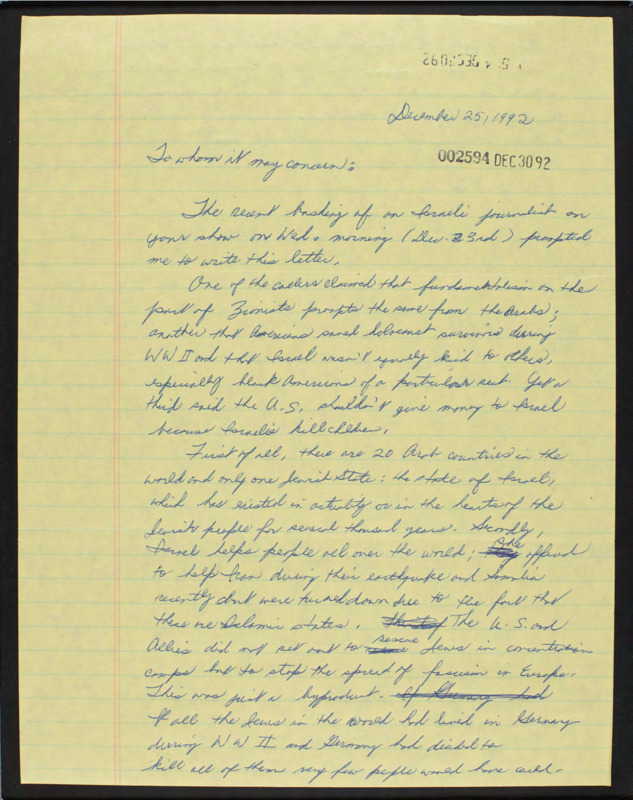 DEC 30 92
December 25, 1992
To whom it may concern:
002594 DEC 30 92
The recent bashing of an Israeli journalist on
your show on Wed. morning (Dec. 23rd) prompted
me to write this letter.
One of the callers claimed that fundamentalism on the
part of Zionists prompts the same from the Arabs;
another that Americans saved holocaust survivors during
WW II and that Israel wasn't equally kind to others,
especially black Americans of a particular sect. Yet a
third said the U.S. shouldn't give money to Israel
because Israelis kill children.
First of all, there are 20 Arab countries in the
world and only one Jewish State: the state of Israel,
which has existed in actuality or in the hearts of the
Jewish people for several thousand years. Secondly,
Israel helps people all over the world; she offered
to help Iran during their earthquake and Somalia
recently but were turned down due to the fact that
these are Islamic states. The U.S. and
Allies did not set out to rescue Jews in concentration
camps but to stop the spread of fascism in Europe.
This was just a byproduct.
If all the Jews in the world had lived in Germany
during WW II and Germany had decided to
kill all of them very few people would have cared.